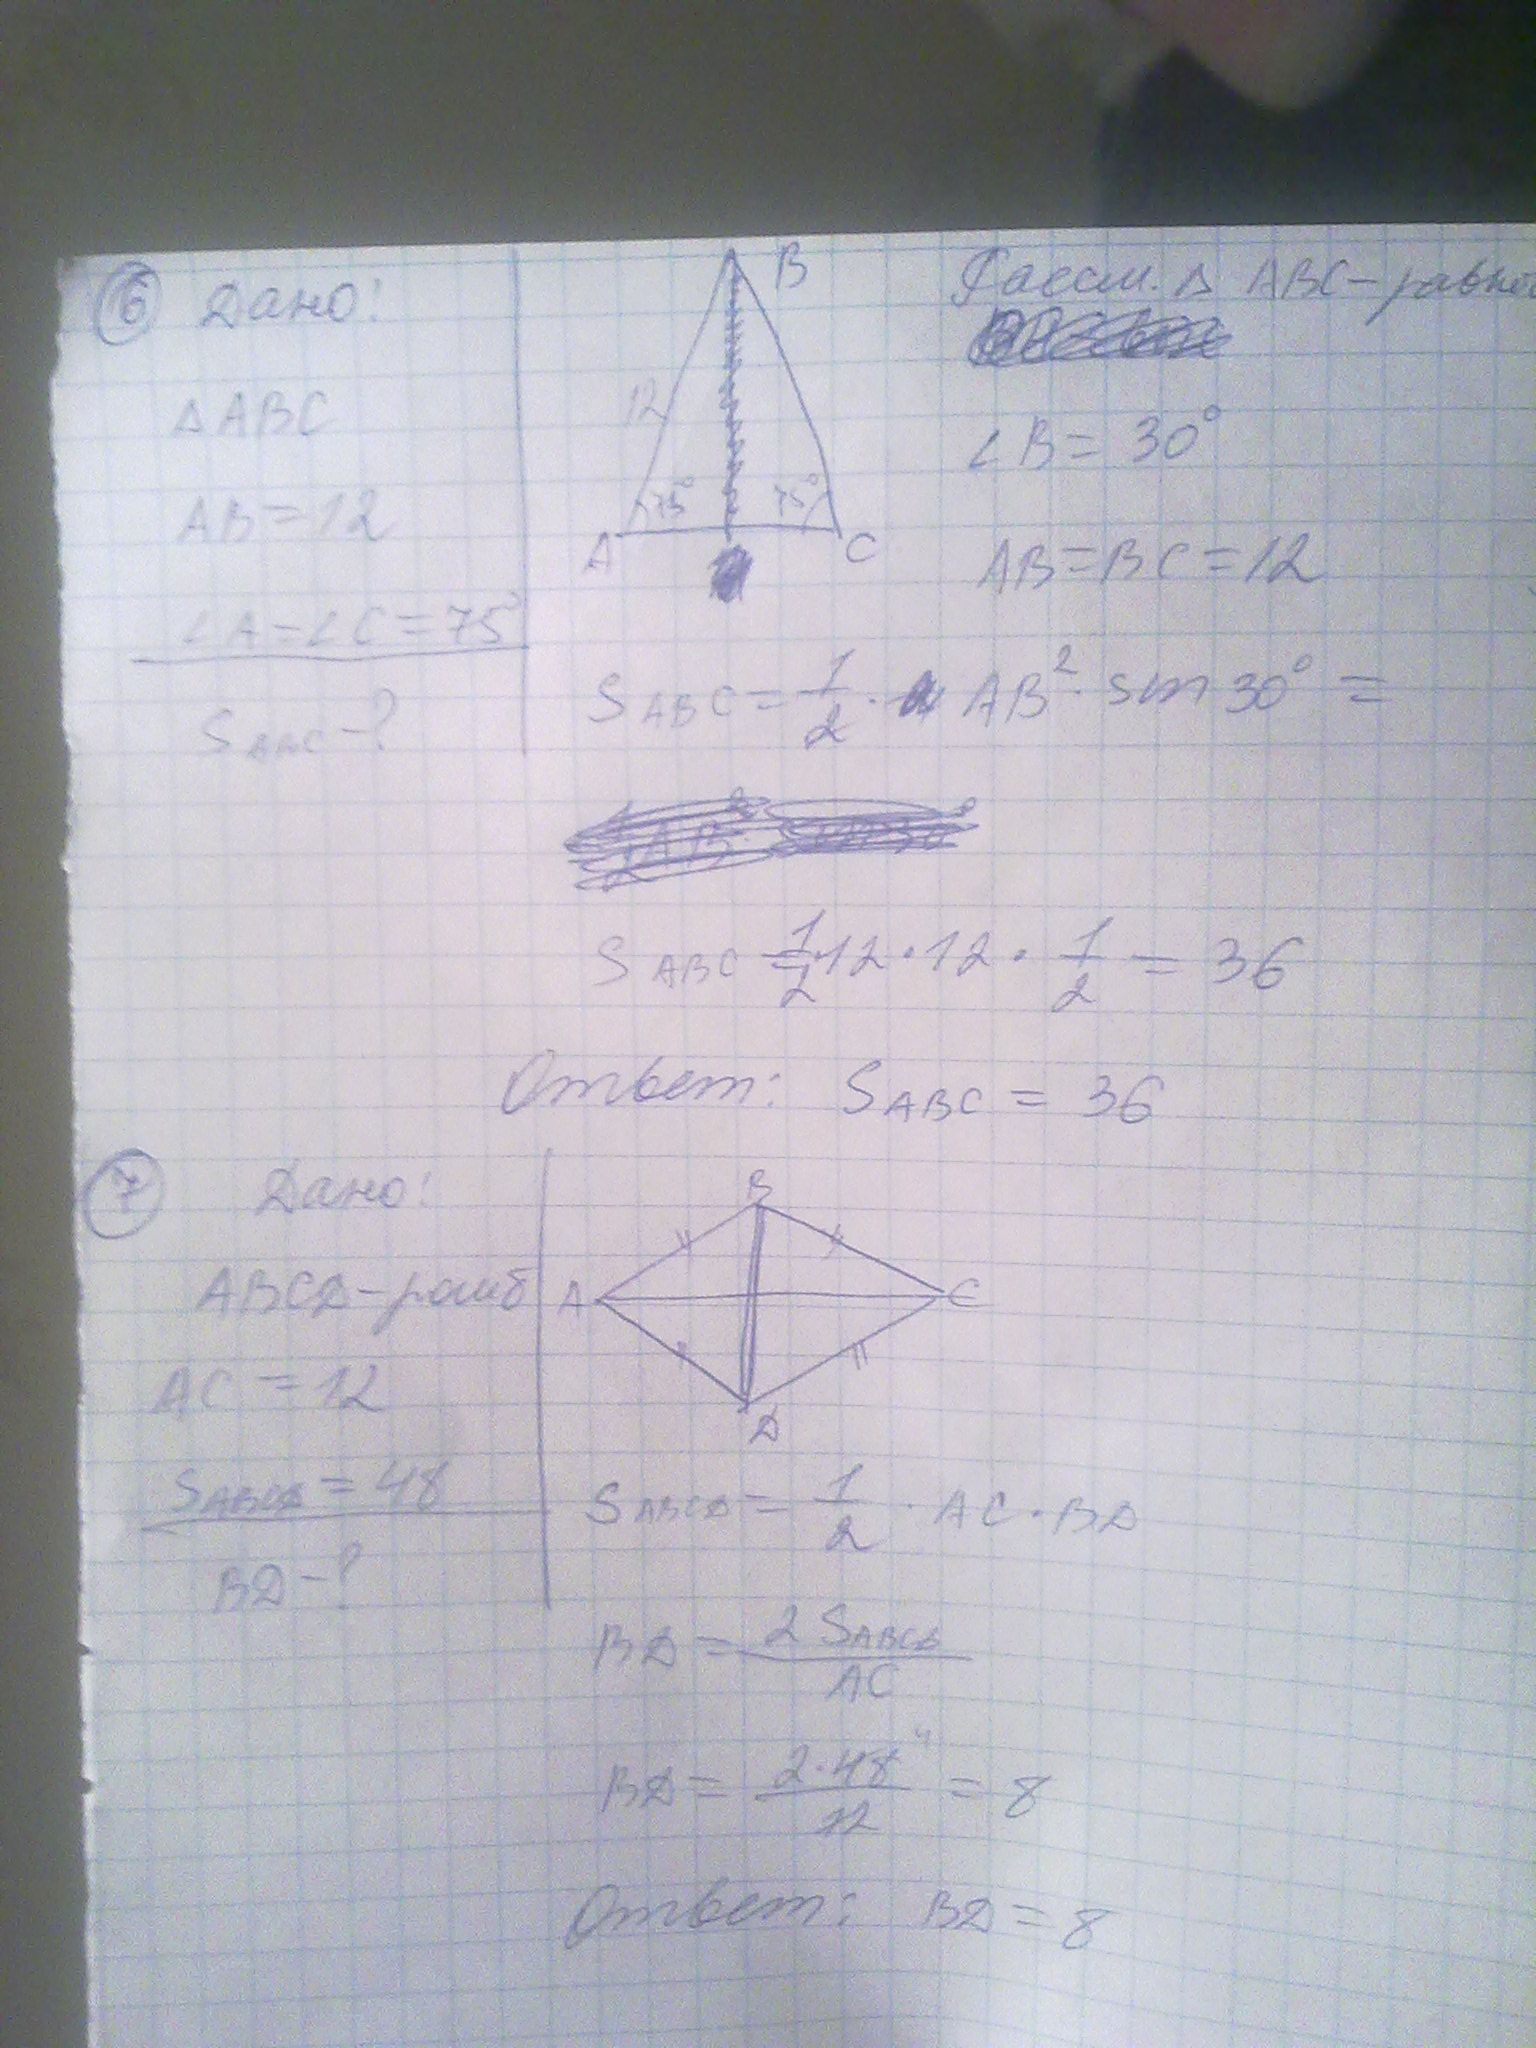 6 Дано:
△ABC
AB = 12
∠A = ∠C = 75°
S ABC - ?
B
12
75° 75°
A C
Рассм. △ ABC - равно
∠B = 30°
AB = BC = 12
S ABC = 1/2 · AB² · sin 30° =
S ABC = 1/2 · 12 · 12 · 1/2 = 36
Ответ: S ABC = 36
7 Дано:
ABCD - ромб
AC = 12
S ABCD = 48
BD - ?
B
A C
D
S ABCD = 1/2 · AC · BD
BD = 2 S ABCD / AC
BD = 2 · 48 4 / 12 = 8
Ответ: BD = 8